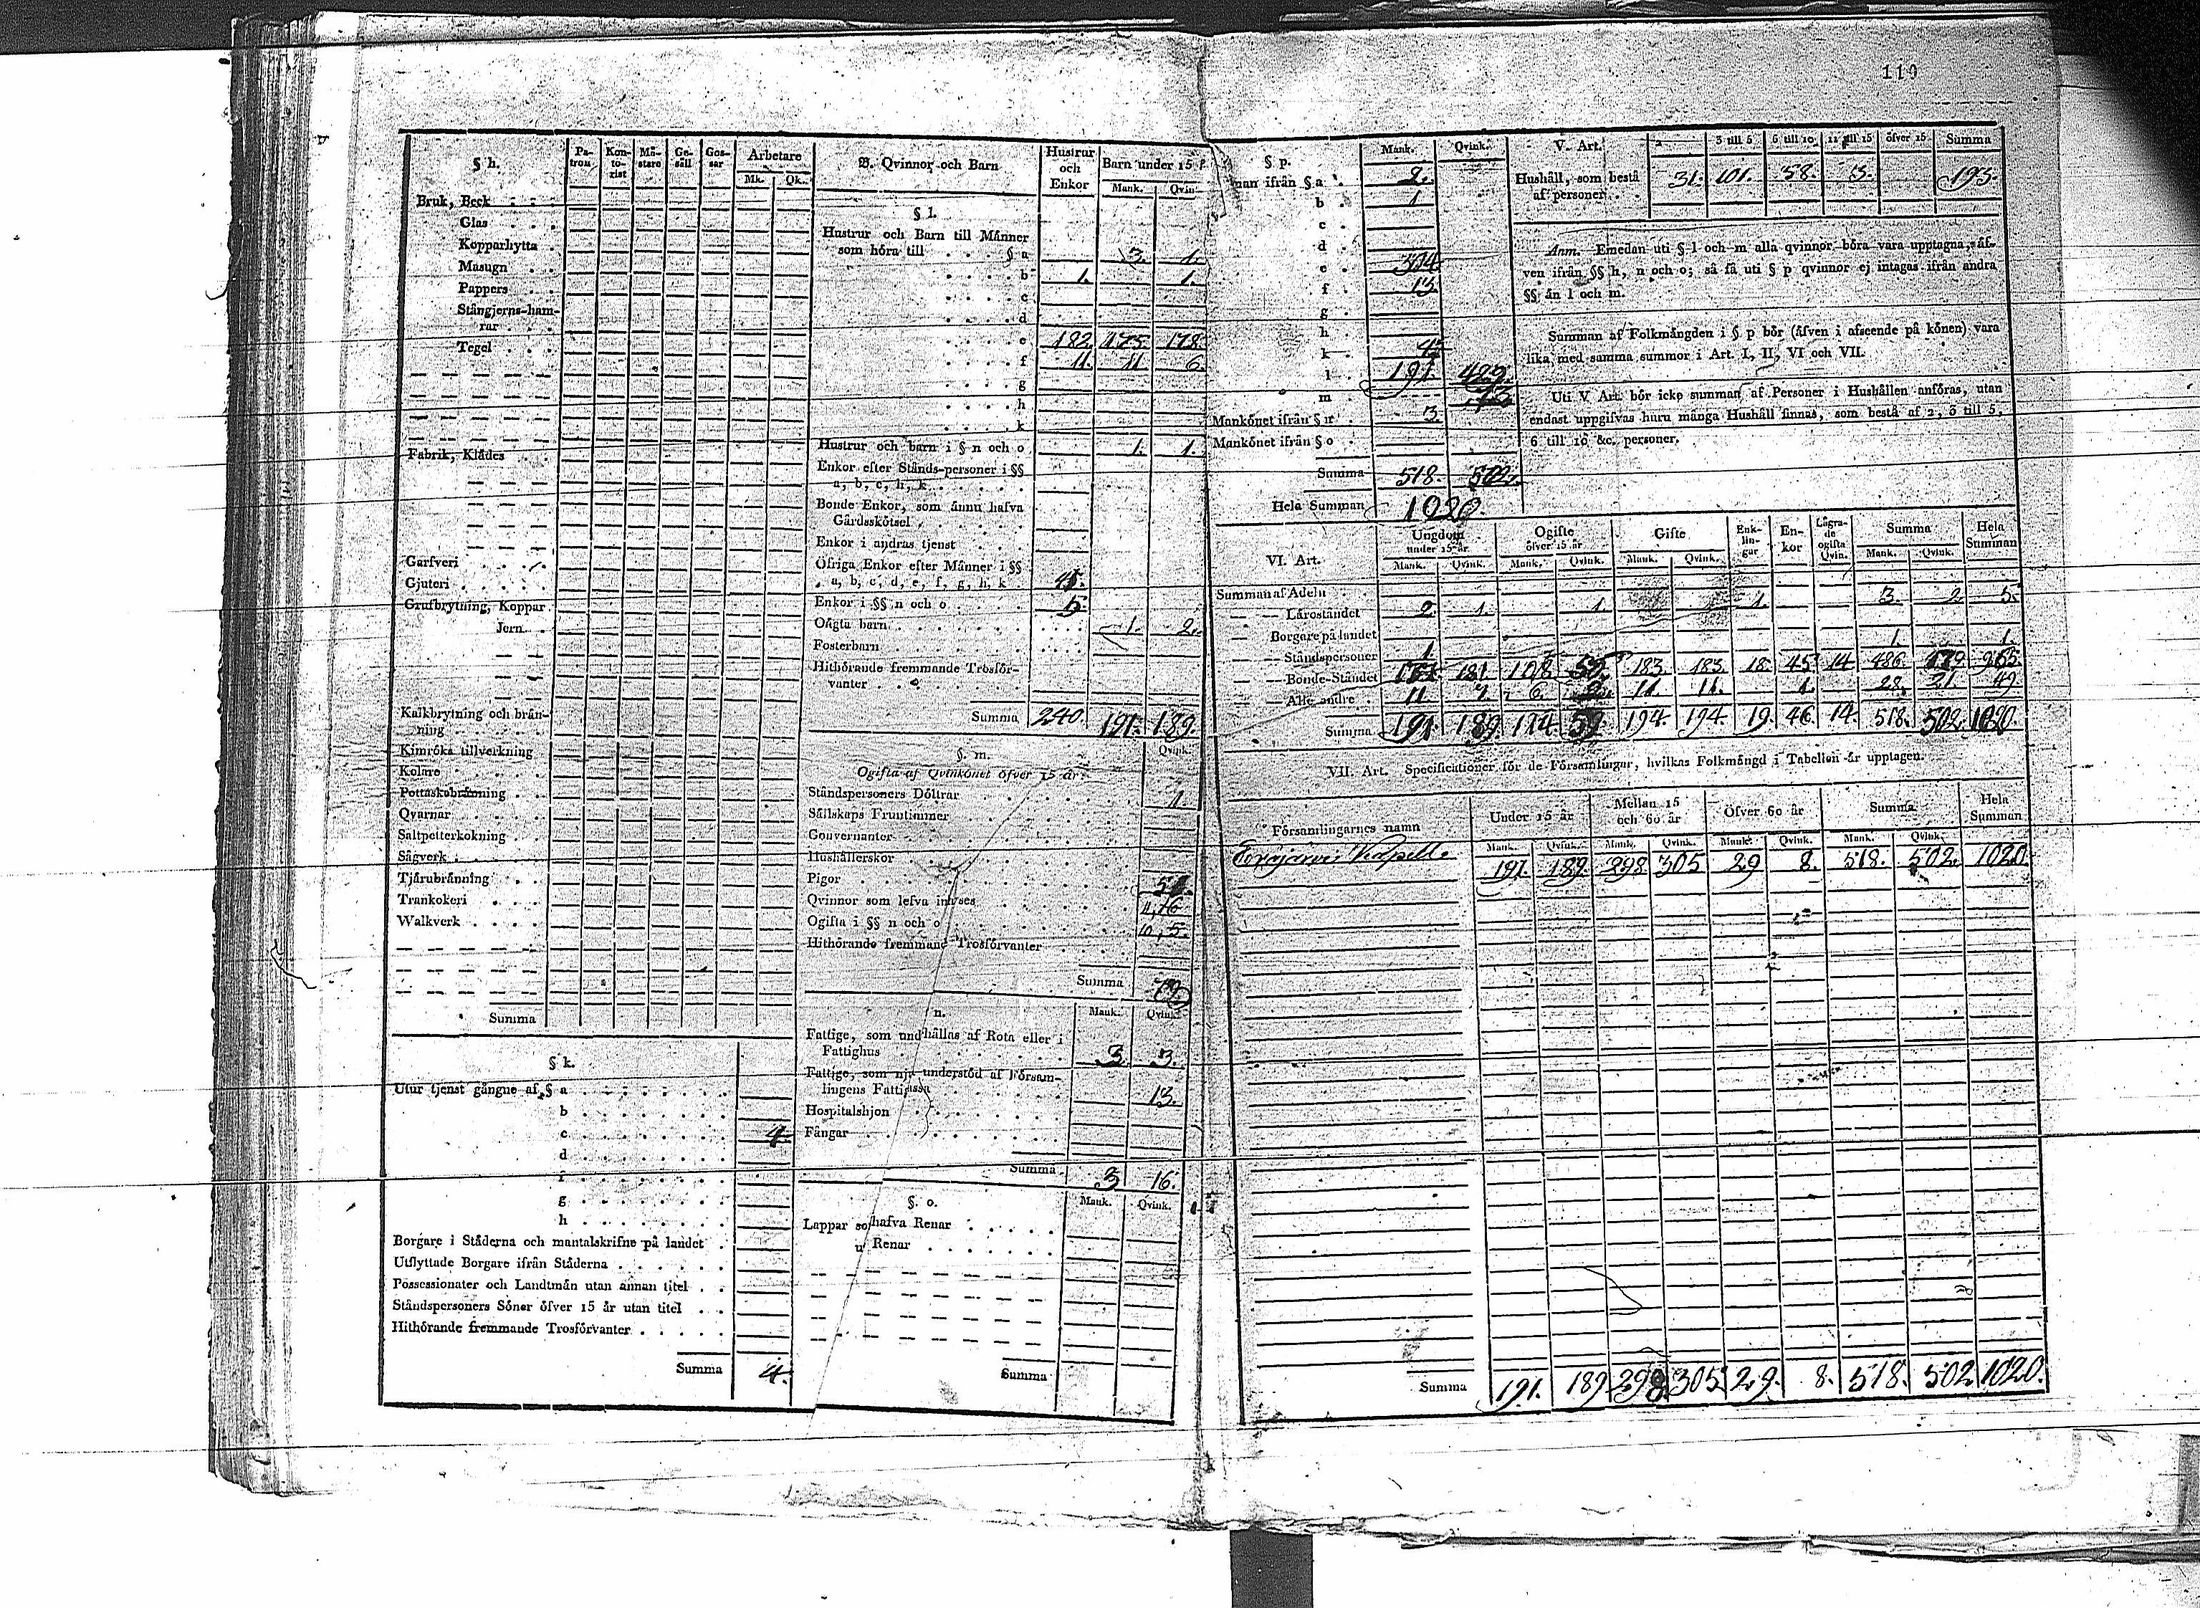 119
§ h.
Pa-tron
Kon-to-rist
Mä-stare
Ge-säll
Gos-sar
Arbetare
Mk. Qk.
Bruk, Beck
Glas
Kopparhytta
Masugn
Pappers
Stångjerns-ham-
rar
Tegel
Fabrik, Klädes
Garfveri
Gjuteri
Grufbrytning, Koppar
Jern
Kalkbrytning och brän-
ning
Kimröks tillverkning
Kolare
Pottaskebränning
Qvarnar
Saltpetterkokning
Sågverk
Tjärubränning
Trankokeri
Walkverk
Summa
§ k.
Utur tjenst gångne af § a
b
c 4
d
f
g
h
Borgare i Städerna och mantalskrifne på landet
Utflyttade Borgare ifrån Städerna
Possessionater och Landtmän utan annan titel
Ståndspersoners Söner öfver 15 år utan titel
Hithörande fremmande Trosförvanter
Summa 4.
B. Qvinnor och Barn
Hustrur och Enkor
Barn under 15
Mank. Qvin
§ l.
Hustrur och Barn till Männer
som höra till § a 3. 1.
b 1. 1.
c
d
e 182 175 178
f 11. 11 6.
g
h
k
Hustrur och barn i § n och o 1. 1.
Enkor efter Stånds-personer i §§
a, b, c, h, k
Bonde Enkor, som ännu hafva
Gårdsskötsel
Enkor i andras tjenst
Öfriga Enkor efter Männer i §§
a, b, c, d, e, f, g, h, k 41.
Enkor i §§ n och o 5
Oägta barn 1. 2.
Fosterbarn
Hithörande fremmande Trosför-
vanter
Summa 240. 191. 189.
§. m. Qvink.
Ogifta af Qvinkönet öfver 15 år
Ståndspersoners Döttrar 1
Sällskaps Fruntimmer
Gouvernanter
Hushållerskor
Pigor
Qvinnor som lefva inhyses
Ogifta i §§ n och o
Hithörande fremmand Trosförvanter
Summa
n. Mank. Qvink.
Fattige, som undhållas af Rota eller i
Fattighus 3. 3.
Fattige, som nju understöd af Försam-
lingens Fattigassa 13.
Hospitalshjon
Fångar
Summa 3 16.
§. o. Mank. Qvink.
Lappar so hafva Renar
u Renar
Summa
§ p. Mank. Qvink.
nan ifrån § a 2.
b 1
c
d
e 304
f 13
g
h
k 4
l 191. 429.
m 73
Mankönet ifrån § n 3.
Mankönet ifrån § o
Summa 518. 502.
Hela Summan 1020.
V. Art. 2 3 till 5 6 till 10 11 till 15 öfver 15 Summa
Hushåll, som bestå
af personer 31. 101. 58. 3. 193.
Anm. Emedan uti § l och m alla qvinnor böra vara upptagna, äf-
ven ifrån §§ h, n och o; så få uti § p qvinnor ej intagas ifrån andra
§§ än l och m.
Summan af Folkmängden i § p bör (äfven i afseende på könen) vara
lika med samma summor i Art. I, II, VI och VII.
Uti V Art. bör icke summan af Personer i Hushållen anföras, utan
endast uppgifvas huru många Hushåll finnas, som bestå af 2, 3 till 5,
6 till 10 &c. personer.
VI. Art.
Ungdom under 15 år
Ogifte öfver 15 år
Gifte
Enk-lin-gar
En-kor
Lägra-de ogifta Qvin.
Summa
Hela Summan
Mank. Qvink. Mank. Qvink. Mank. Qvink. Mank. Qvink.
Summan af Adeln
— — Läroståndet 2 1. 1 1 1 1. 3 2 5.
— — Borgare på landet
— — Ståndspersoner 1 1. 1.
— — Bonde-Ståndet 177 181. 108. 183. 183. 18. 45 14 486. 479. 965.
— — Alle andre 11 7 6. 2. 11 11. 1. 28. 21 49
Summa 191 189. 114. 59. 194. 194. 19. 46. 14. 518. 502. 1020.
VII. Art. Specificationer för de Församlingar, hvilkas Folkmängd i Tabellen är upptagen.
Församlingarnes namn
Under 15 år
Mellan 15 och 60 år
Öfver 60 år
Summa
Hela Summan
Mank. Qvink. Mank. Qvink. Mank. Qvink. Mank. Qvink.
Evijärvi Kapell. 191. 189. 298. 305 29 8. 518. 502. 1020
Summa 191. 189. 298. 305. 29. 8. 518. 502. 1020.